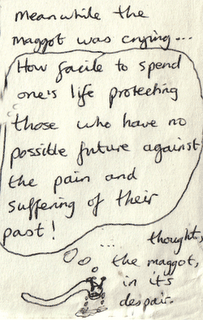 Meanwhile the
maggot was crying...
How facile to spend
one's life protecting
those who have no
possible future against
the pain and
suffering of their
past!
... thought,
the maggot,
in its
despair.